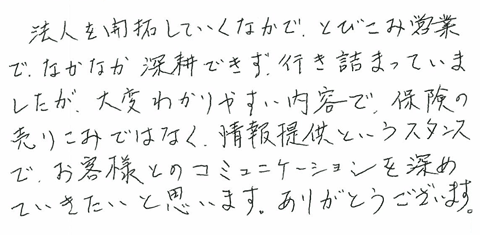 法人を開拓していくなかで、とびこみ営業
で、なかなか深耕できず、行き詰まっていま
したが、大変わかりやすい内容で、保険の
売りこみではなく、情報提供というスタンス
で、お客様とのコミュニケーションを深め
ていきたいと思います。ありがとうございます。